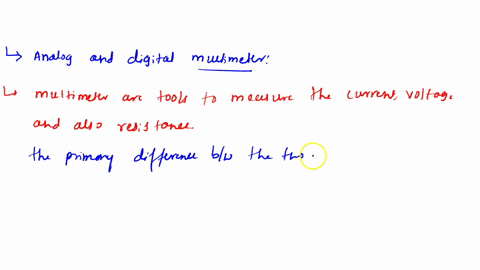 ↳ Analog and digital multimeter:
↳ multimeter are tools to measure the current, voltage
and also resistance
the primary difference b/w the two.